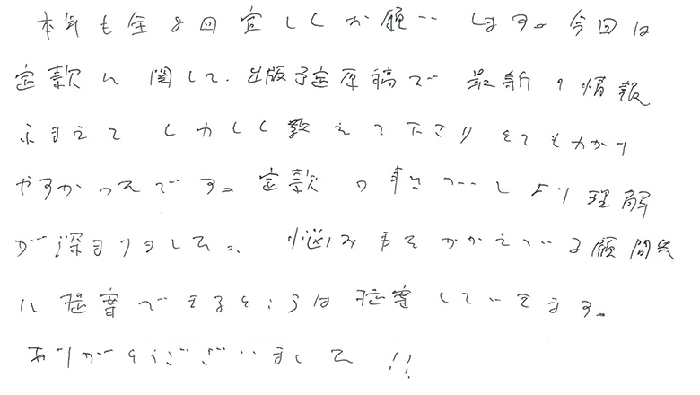 本年も全8回宜しくお願いします。今回は
定款に関して、出版予定原稿で最新の情報
ふまえてくわしく教えて下さりとてもわかり
やすかったです。定款の事についてより理解
が深まりました。悩みをかかえている顧問先
に提案できるところは提案していきます。
ありがとうございました!!